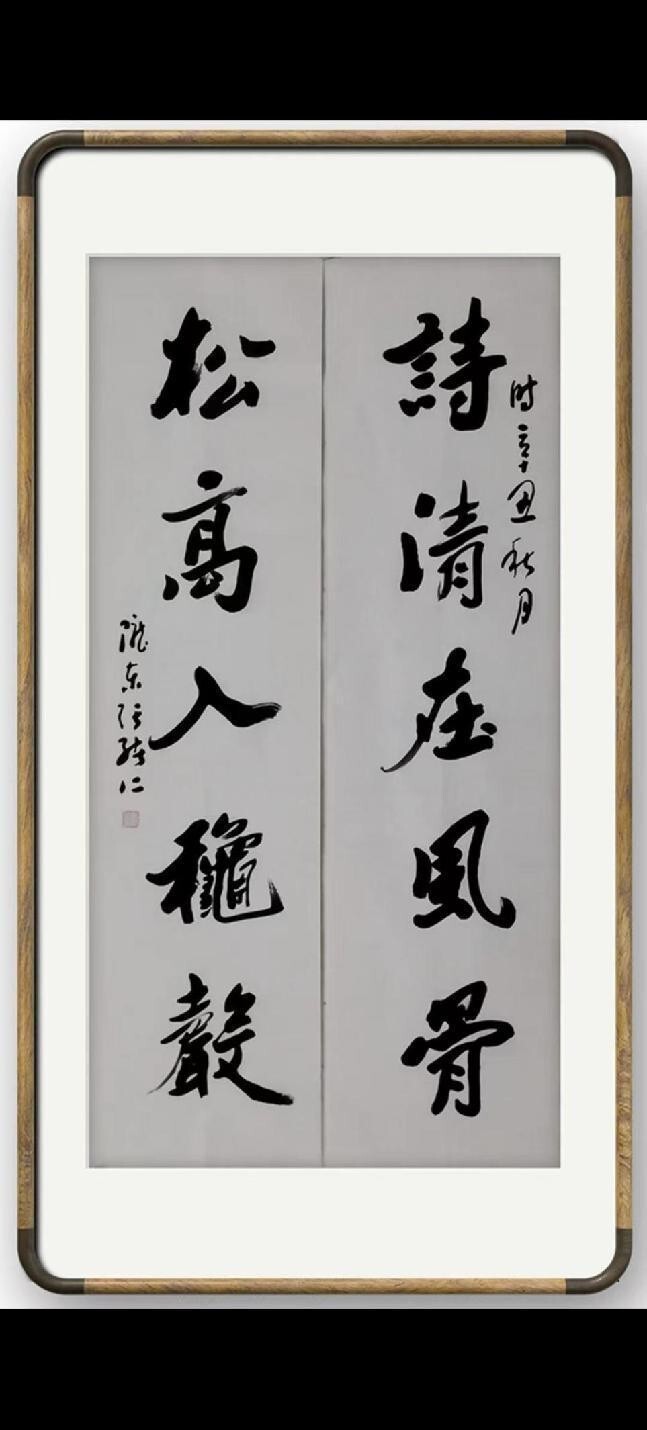 时辛丑秋月
詩清在風骨
松高入龝聲
陇东张仁